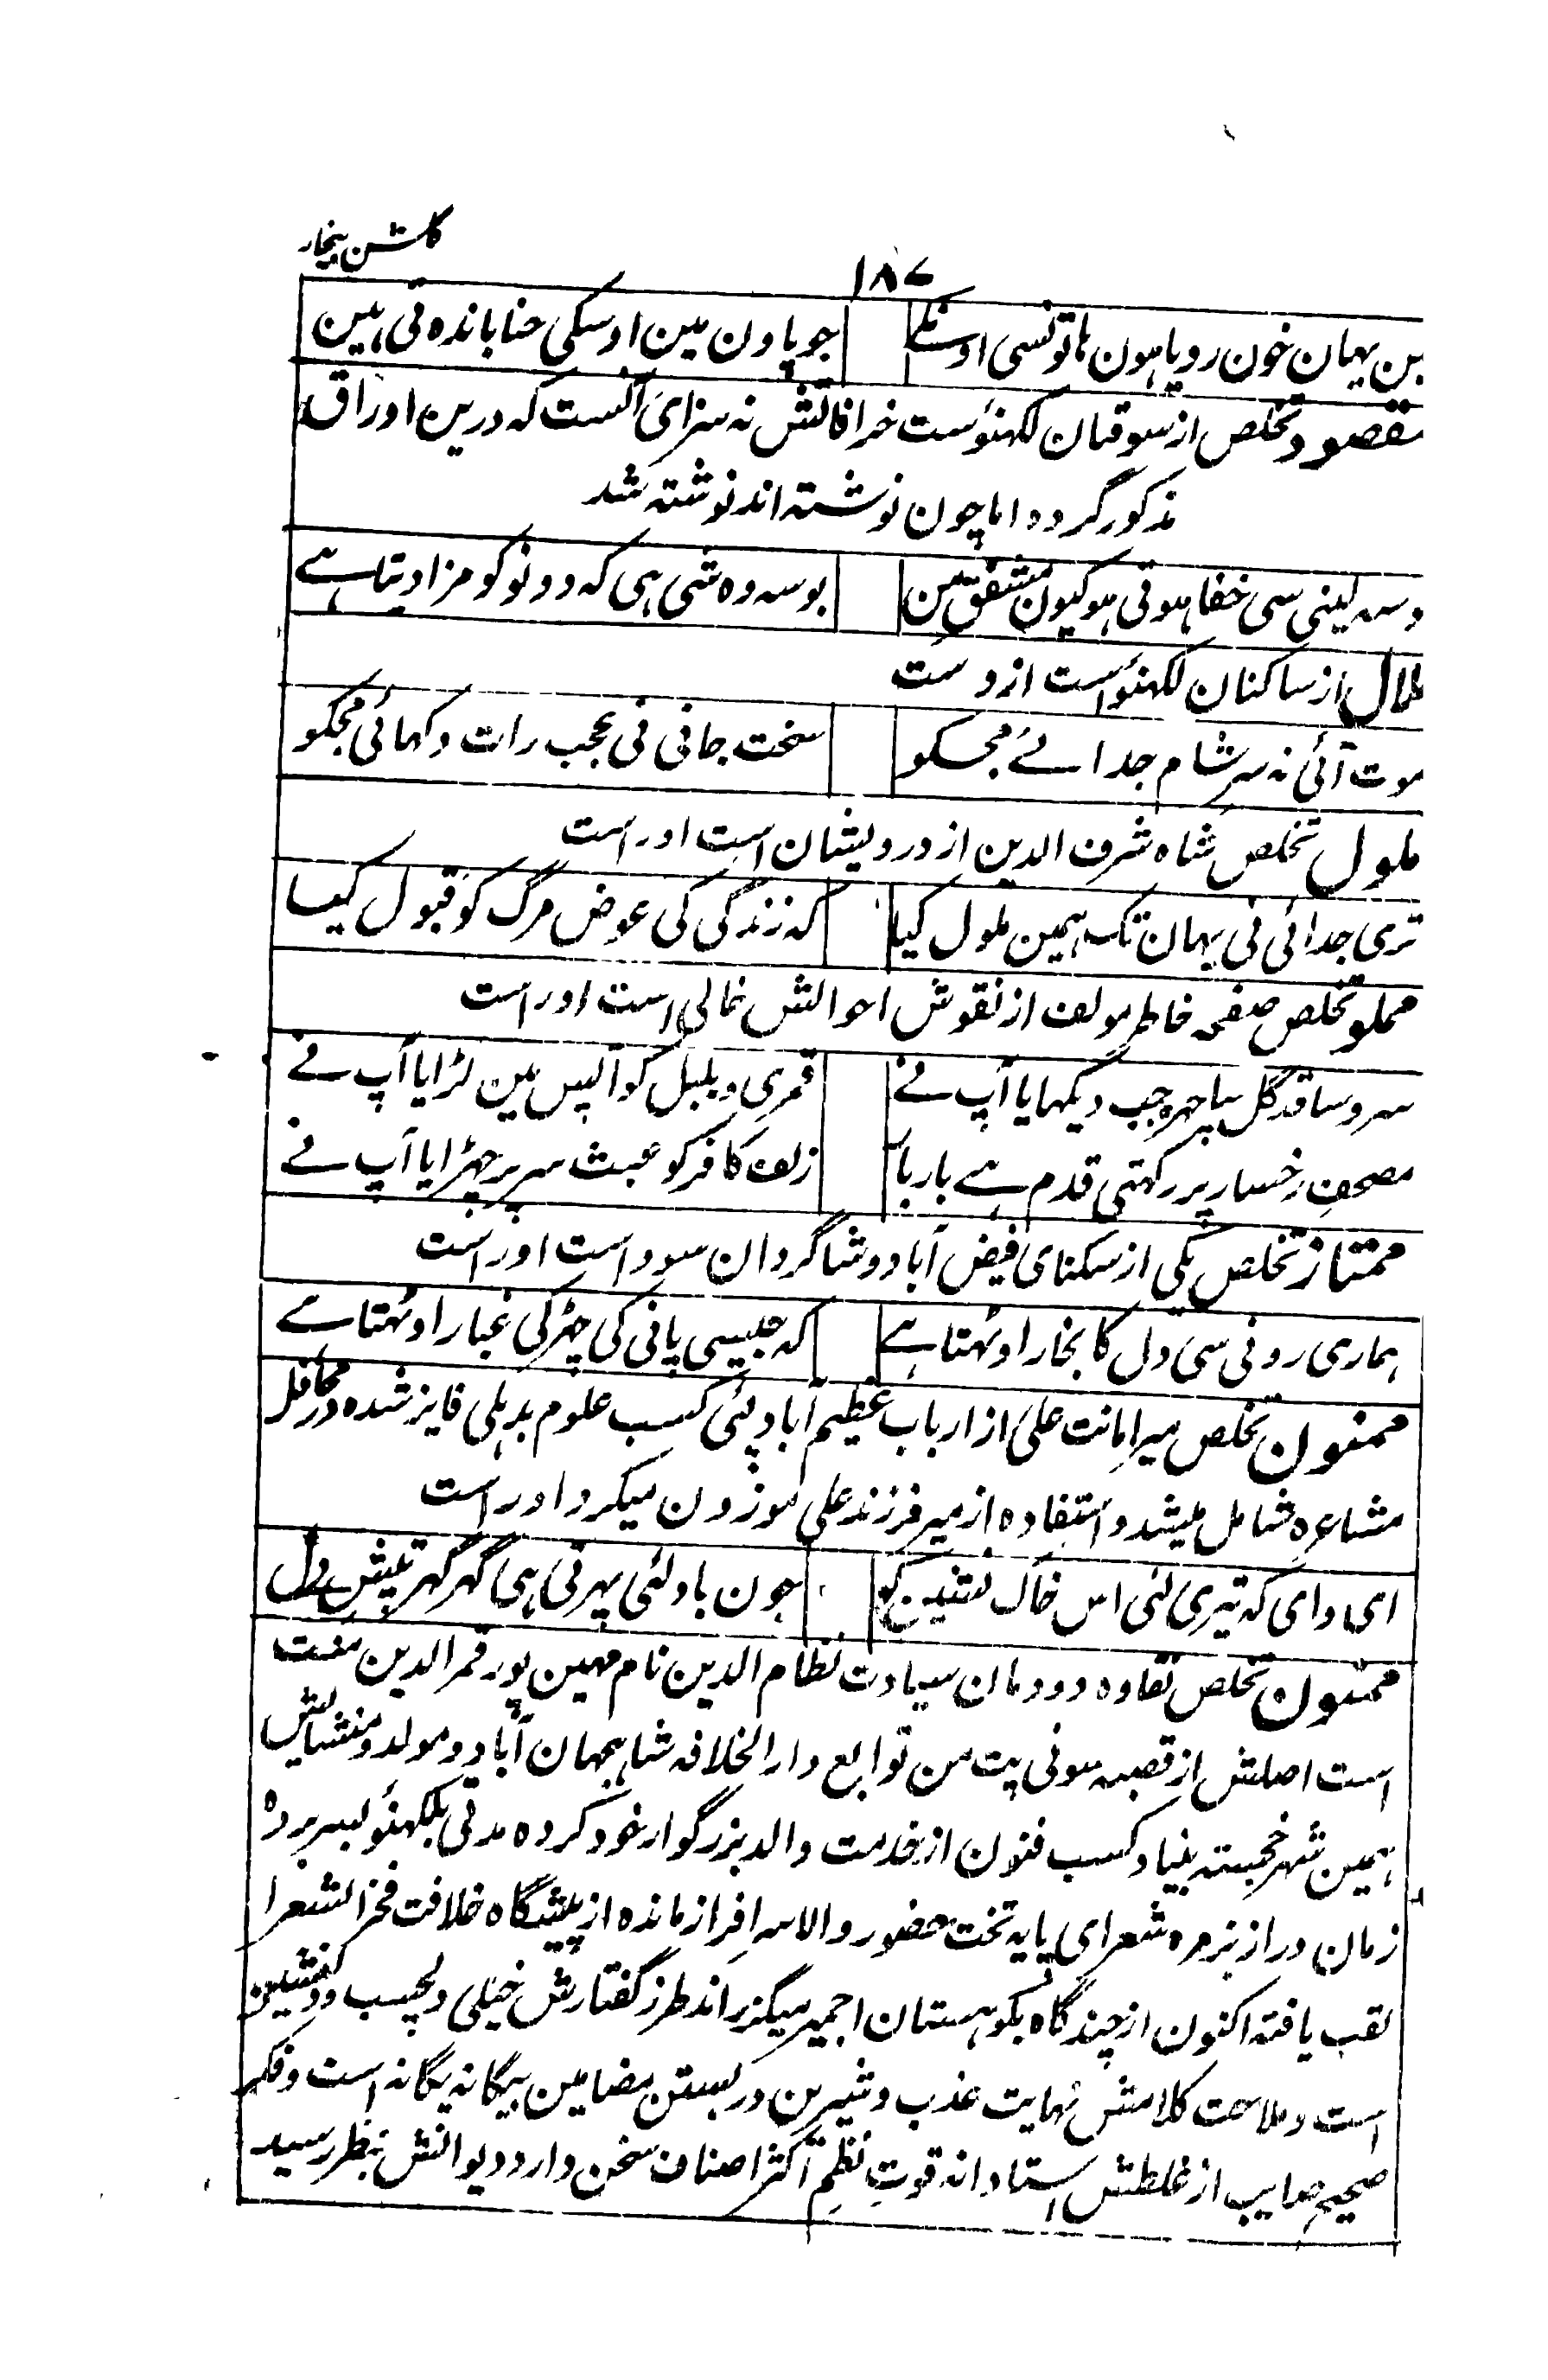 گلشن بیخار
۱۸۷
بن یہان خون رویا ہون ہاتونسی اوسکے جو پاون مین اوسکی حنا باندہ تی ہین
مقصود تخلص از سوقیان لکہنؤست خرافاتش نہ سزای آنست کہ درین اوراق
مذکور گردد اما چون نوشتہ اند نوشتہ شد
وسہ لینی سی خفا ہوتی ہو کیون مشفق من بوسہ وہ شی ہی کہ دونو کو مزا دیتا ہے
ملال از ساکنان لکہنؤ است ازوست
موت آئی نہ سر شام جدائے مجسکو سخت جانی نی عجب رات دکہائی مجکو
ملول تخلص شاہ شرف الدین از درویشان است اوراست
تری جدائی نی یہان تک ہمین ملول کیا کہ زندگی کی عوض مرگ کو قبول کیا
مملو تخلص صفحہ خاطر مولف از نقوش احوالش خالی است اوراست
سروسا قد گل سا چہرہ جب دیکہایا آپ نے قمری و بلبل کو آپس مین لڑایا آپ نے
مصحف رخسار پر رکہتی قدم ہے بار بار زلف کافر کو عبث سر پر چڑایا آپ نے
ممتاز تخلص یکی از سکنای فیض آباد و شاگردان سودا است اوراست
ہماری رونی سی دل کا بخار اوٹہتا ہے کہ جیسی پانی کی چہڑکی غبار اوٹہتا ہے
ممنون تخلص میر امانت علی از ارباب عظیم آباد پئی کسب علوم بدہلی فایز شدہ در محافل
مشاعرہ شامل میشد و استفادہ از میر فرزند علی موزون میکرد اوراست
ای وای کہ تیری لئی اس خاک نشین کو جون باد لئی پہرتی ہی گہر گہر تپش دل
ممنون تخلص نقاوہ دودمان سیادت نظام الدین نام مہین پور قمر الدین منت
است اصلش از قصبہ سونی پت من توابع دار الخلافہ شاہجہان آباد و مولد و منشایش
ہمین شہر خجستہ بنیاد کسب فنون از خدمت والد بزرگوار خود کردہ مدتی بلکہنؤ بسر بردہ
زمان دراز بزمرہ شعرای پایہ تخت حضور والا سرافراز ماندہ از پیشگاہ خلافت فخر الشعرا
لقب یافتہ اکنون از چند گاہ بکوہستان اجمیر میگذراند طرز گفتارش خیلی دلچسپ و دلنشین
است و ملاحت کلامش نہایت عذب و شیرین در بستن مضامین بیگانہ یگانہ است و فکر
صحیح صایب از غلطش استادانہ قوت نظم اکثر اصناف سخن دارد دیوانش بنظر رسید